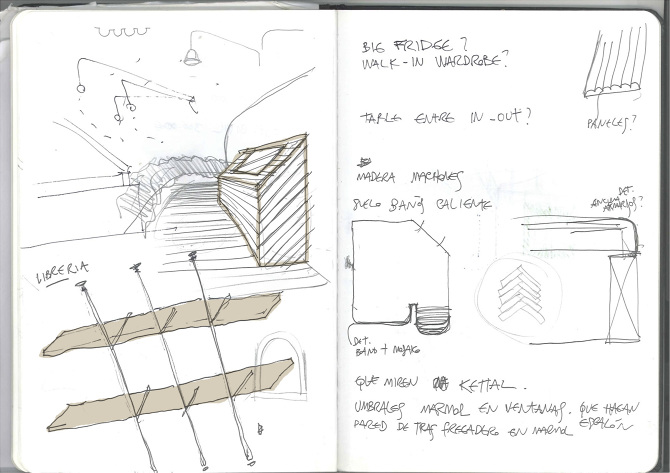 LIBRERIA
BIG FRIDGE?
WALK-IN WARDROBE?
PANELES?
TABLE ENTRE IN-OUT?
MADERA MACHONES
SUELO BAÑO CALIENTE
DET.
ARMARIOS?
DET.
BAÑO + MOSAICO
QUE MIREN KETTAL.
UMBRALES MARMOL EN VENTANAS. QUE HAGAN
ESCALÓN
PARED DE TRAS FREGADERO EN MARMOL